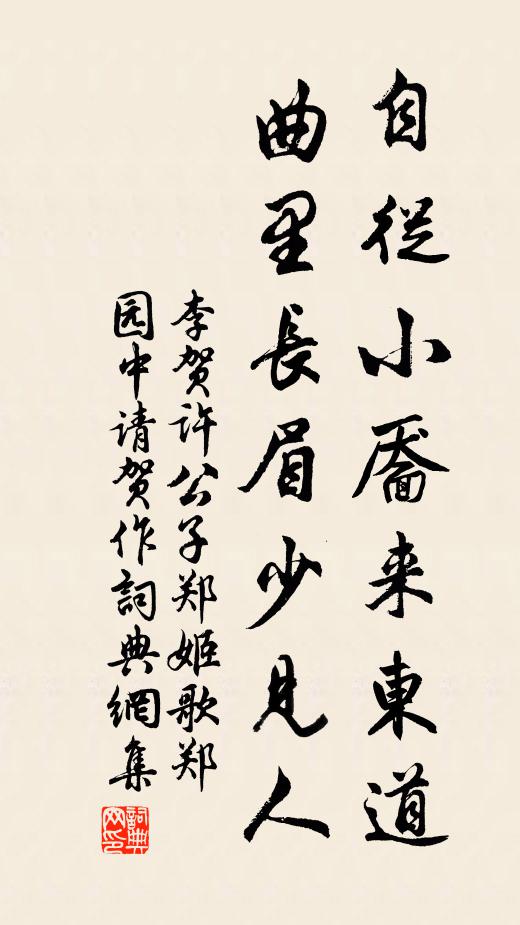 自從小靨来東道
曲里長眉少見人
李贺许公子郑姬歌郑
园中请贺作詞典網集
詞典網印